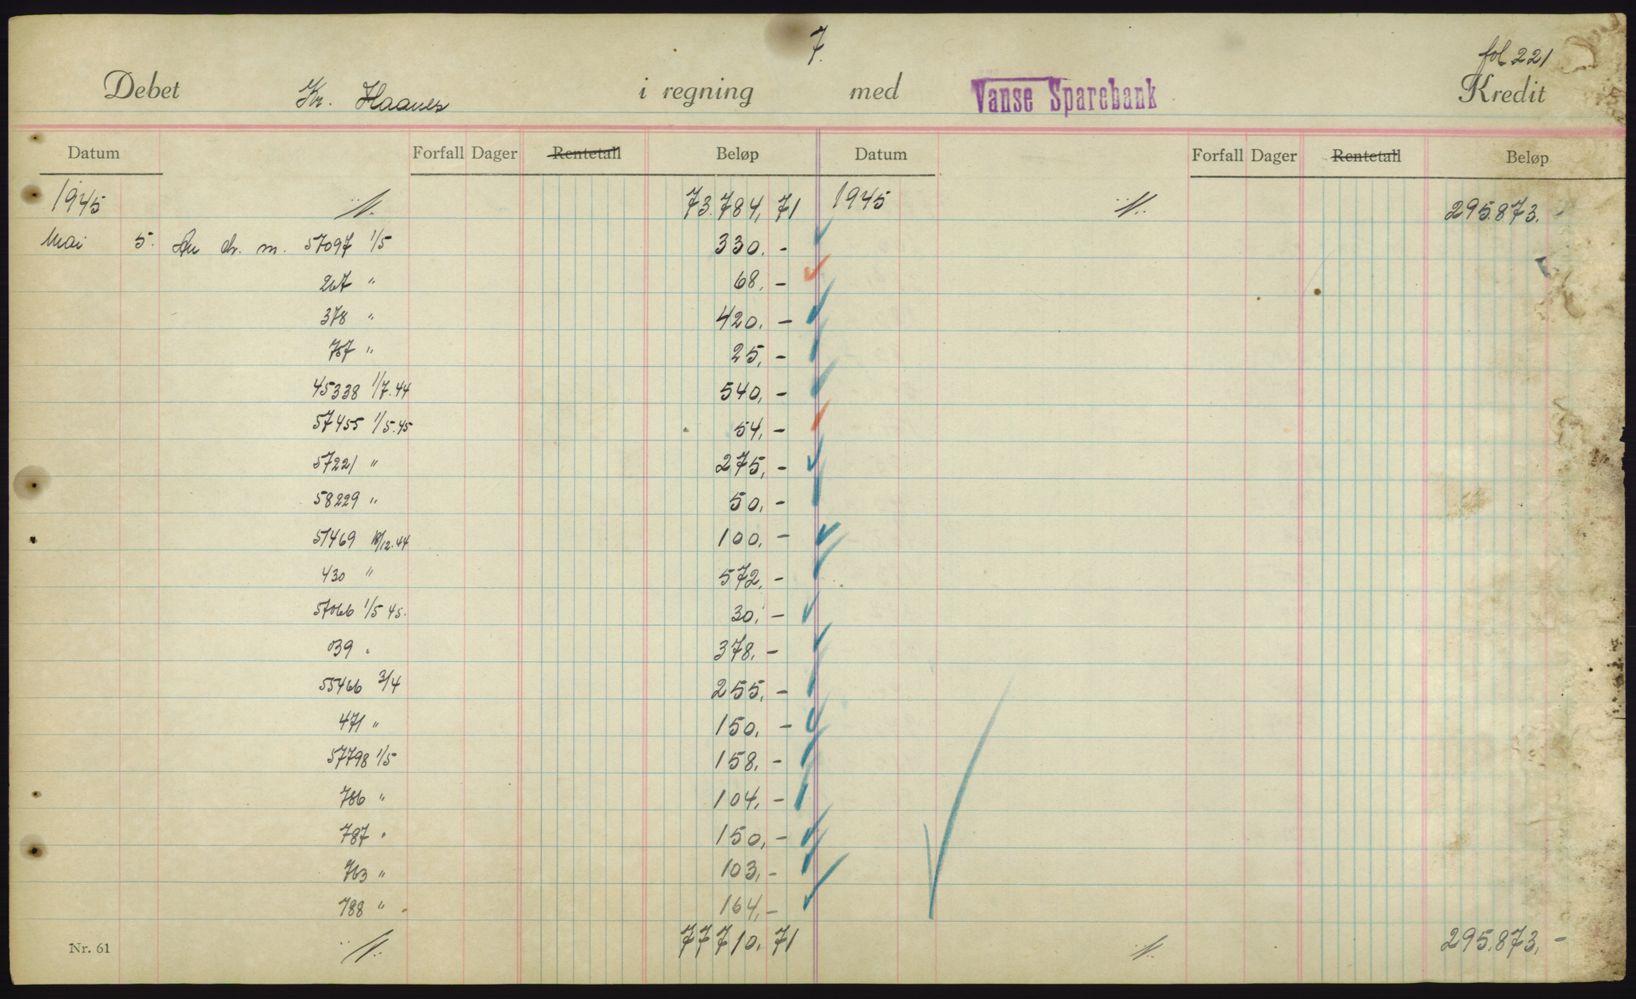 7.
fol 221
Debet Kr. Haanes i regning med Vanse Sparebank Kredit
Datum Forfall Dager Rentetall Beløp Datum Forfall Dager Rentetall Beløp
1945 73.784,71 1945 295.873.-
Mai 5. 57097 1/5 330.-
267 " 68.-
378 " 420.-
757 " 25.-
45338 1/7.44 540.-
57455 1/5.45 54.-
57221 " 275.-
58229 " 50.-
51469 18/12.44 100.-
430 " 572.-
57066 1/5 45. 30.-
039 " 378.-
55466 3/4 255.-
471 " 150.-
57798 1/5 158.-
786 " 104.-
787 " 150.-
763 " 103.-
788 " 164.-
Nr. 61 77710.71 295.873.-